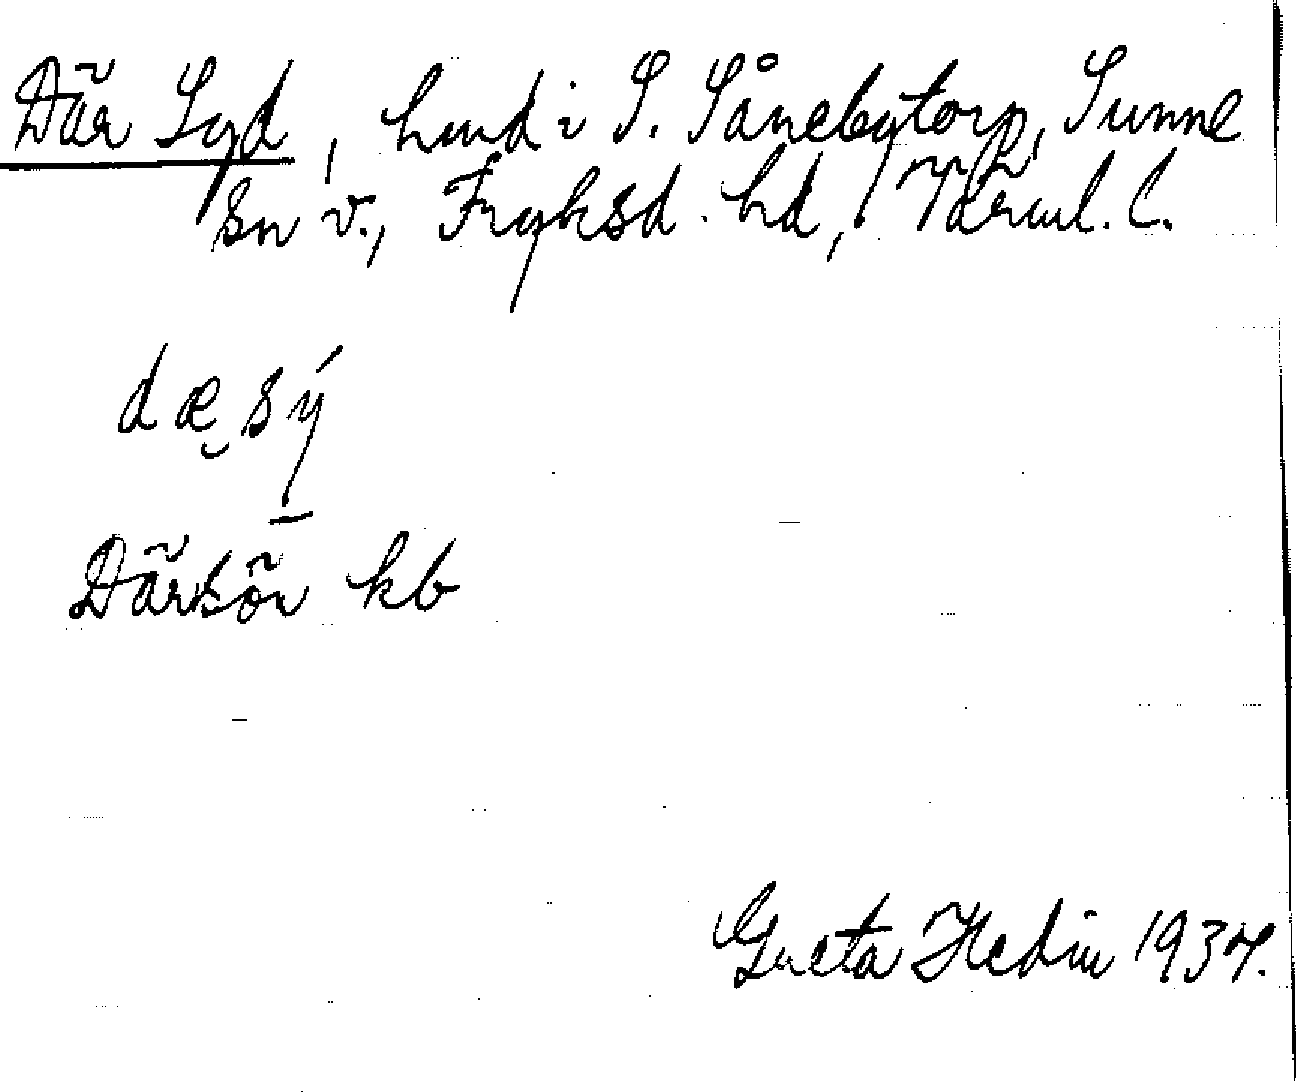 Där Syd, hmd i S. Sånebytorp, Sunne
sn v., Fryksd. hd, Värml. l.
dæ̮sý
Därsön kb
Greta Hedin 1937.